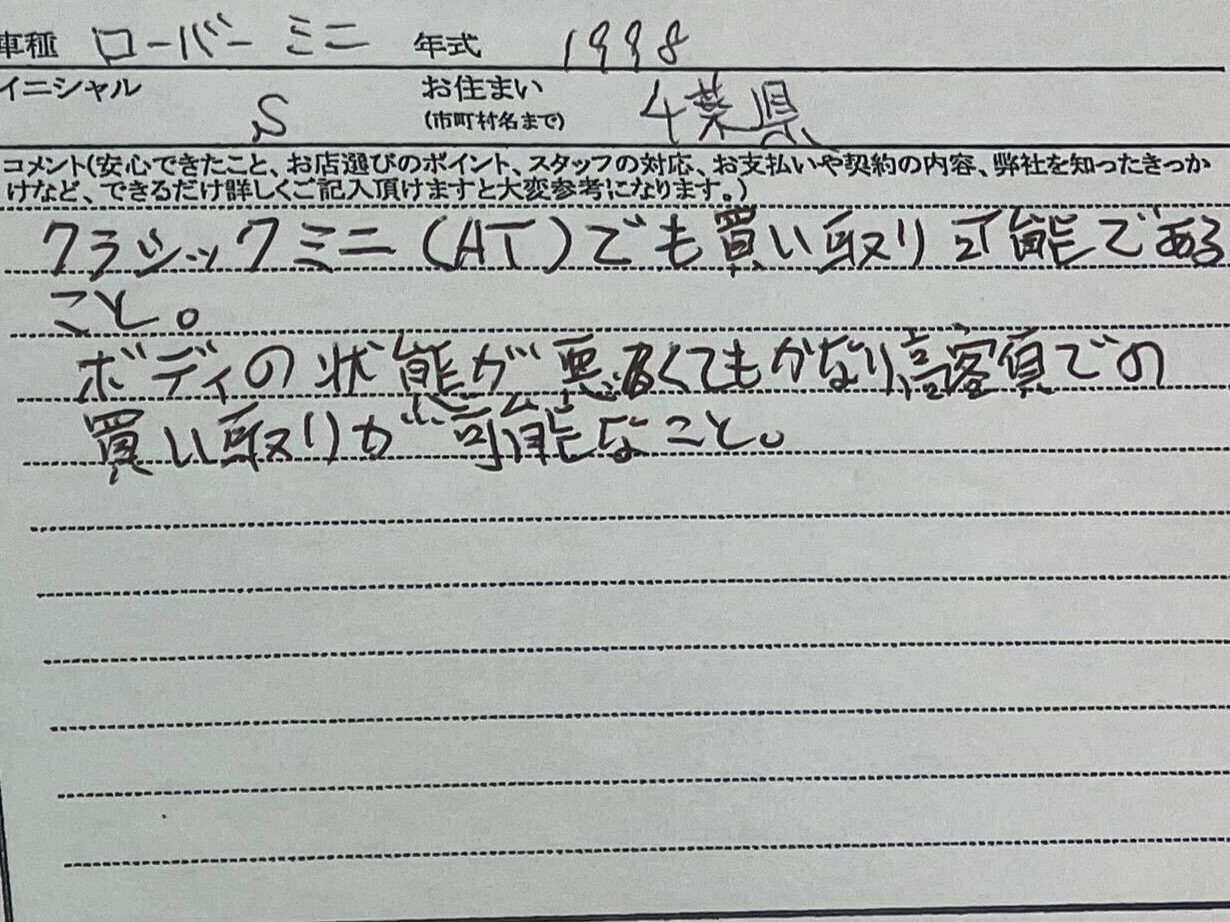 車種 ローバー ミニ 年式 1998
イニシャル S お住まい 千葉県
(市町村名まで)
コメント(安心できたこと、お店選びのポイント、スタッフの対応、お支払いや契約の内容、弊社を知ったきっか
けなど、できるだけ詳しくご記入頂けますと大変参考になります。)
クラシックミニ(AT)でも買い取り可能である
こと。
ボディの状態が悪くてもかなり高額での
買い取りが可能なこと。